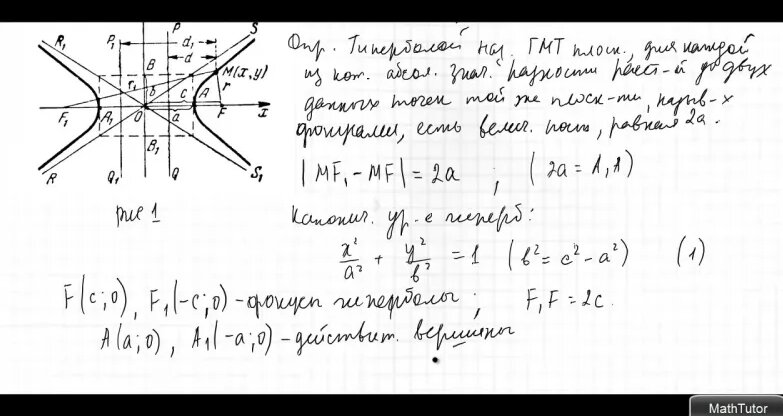 P₁ P
R₁ S
d₁
d
B M(x,y)
r₁ b c A r
F₁ A₁ O a F x
B₁
R Q₁ Q S₁
рис 1
Опр. Гиперболой наз. ГМТ плоск., для каждой
из кот. абсол. знач. разности расст-й до двух
данных точек той же плоск-ти, назыв-х
фокусами, есть велич. пост., равная 2a.
|MF₁ - MF| = 2a ; (2a = A₁A)
Канонич. ур-е гиперб:
x²/a² + y²/b² = 1 (b² = c² - a²) (1)
F(c;0), F₁(-c;0) - фокусы гиперболы; F₁F = 2c.
A(a;0), A₁(-a;0) - действит. вершины
MathTutor